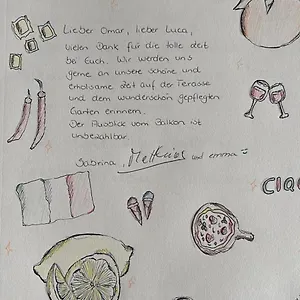 Lieber Omar, lieber Luca,
vielen Dank für die tolle Zeit
bei Euch. Wir werden uns
gerne an unsere schöne und
erholsame Zeit auf der Terasse
und dem wunderschön gepflegten
Garten erinnern.
Der Ausblick vom Balkon ist
unbezahlbar.
Sabrina, Mathias und emma
CIAO